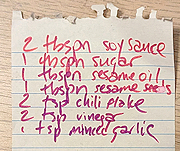 2 tbspn soy sauce
1 tbspn sugar
1 tbspn sesame oil
1 tbspn sesame seeds
2 tsp chili flake
2 tsp vinegar
1 tsp minced garlic